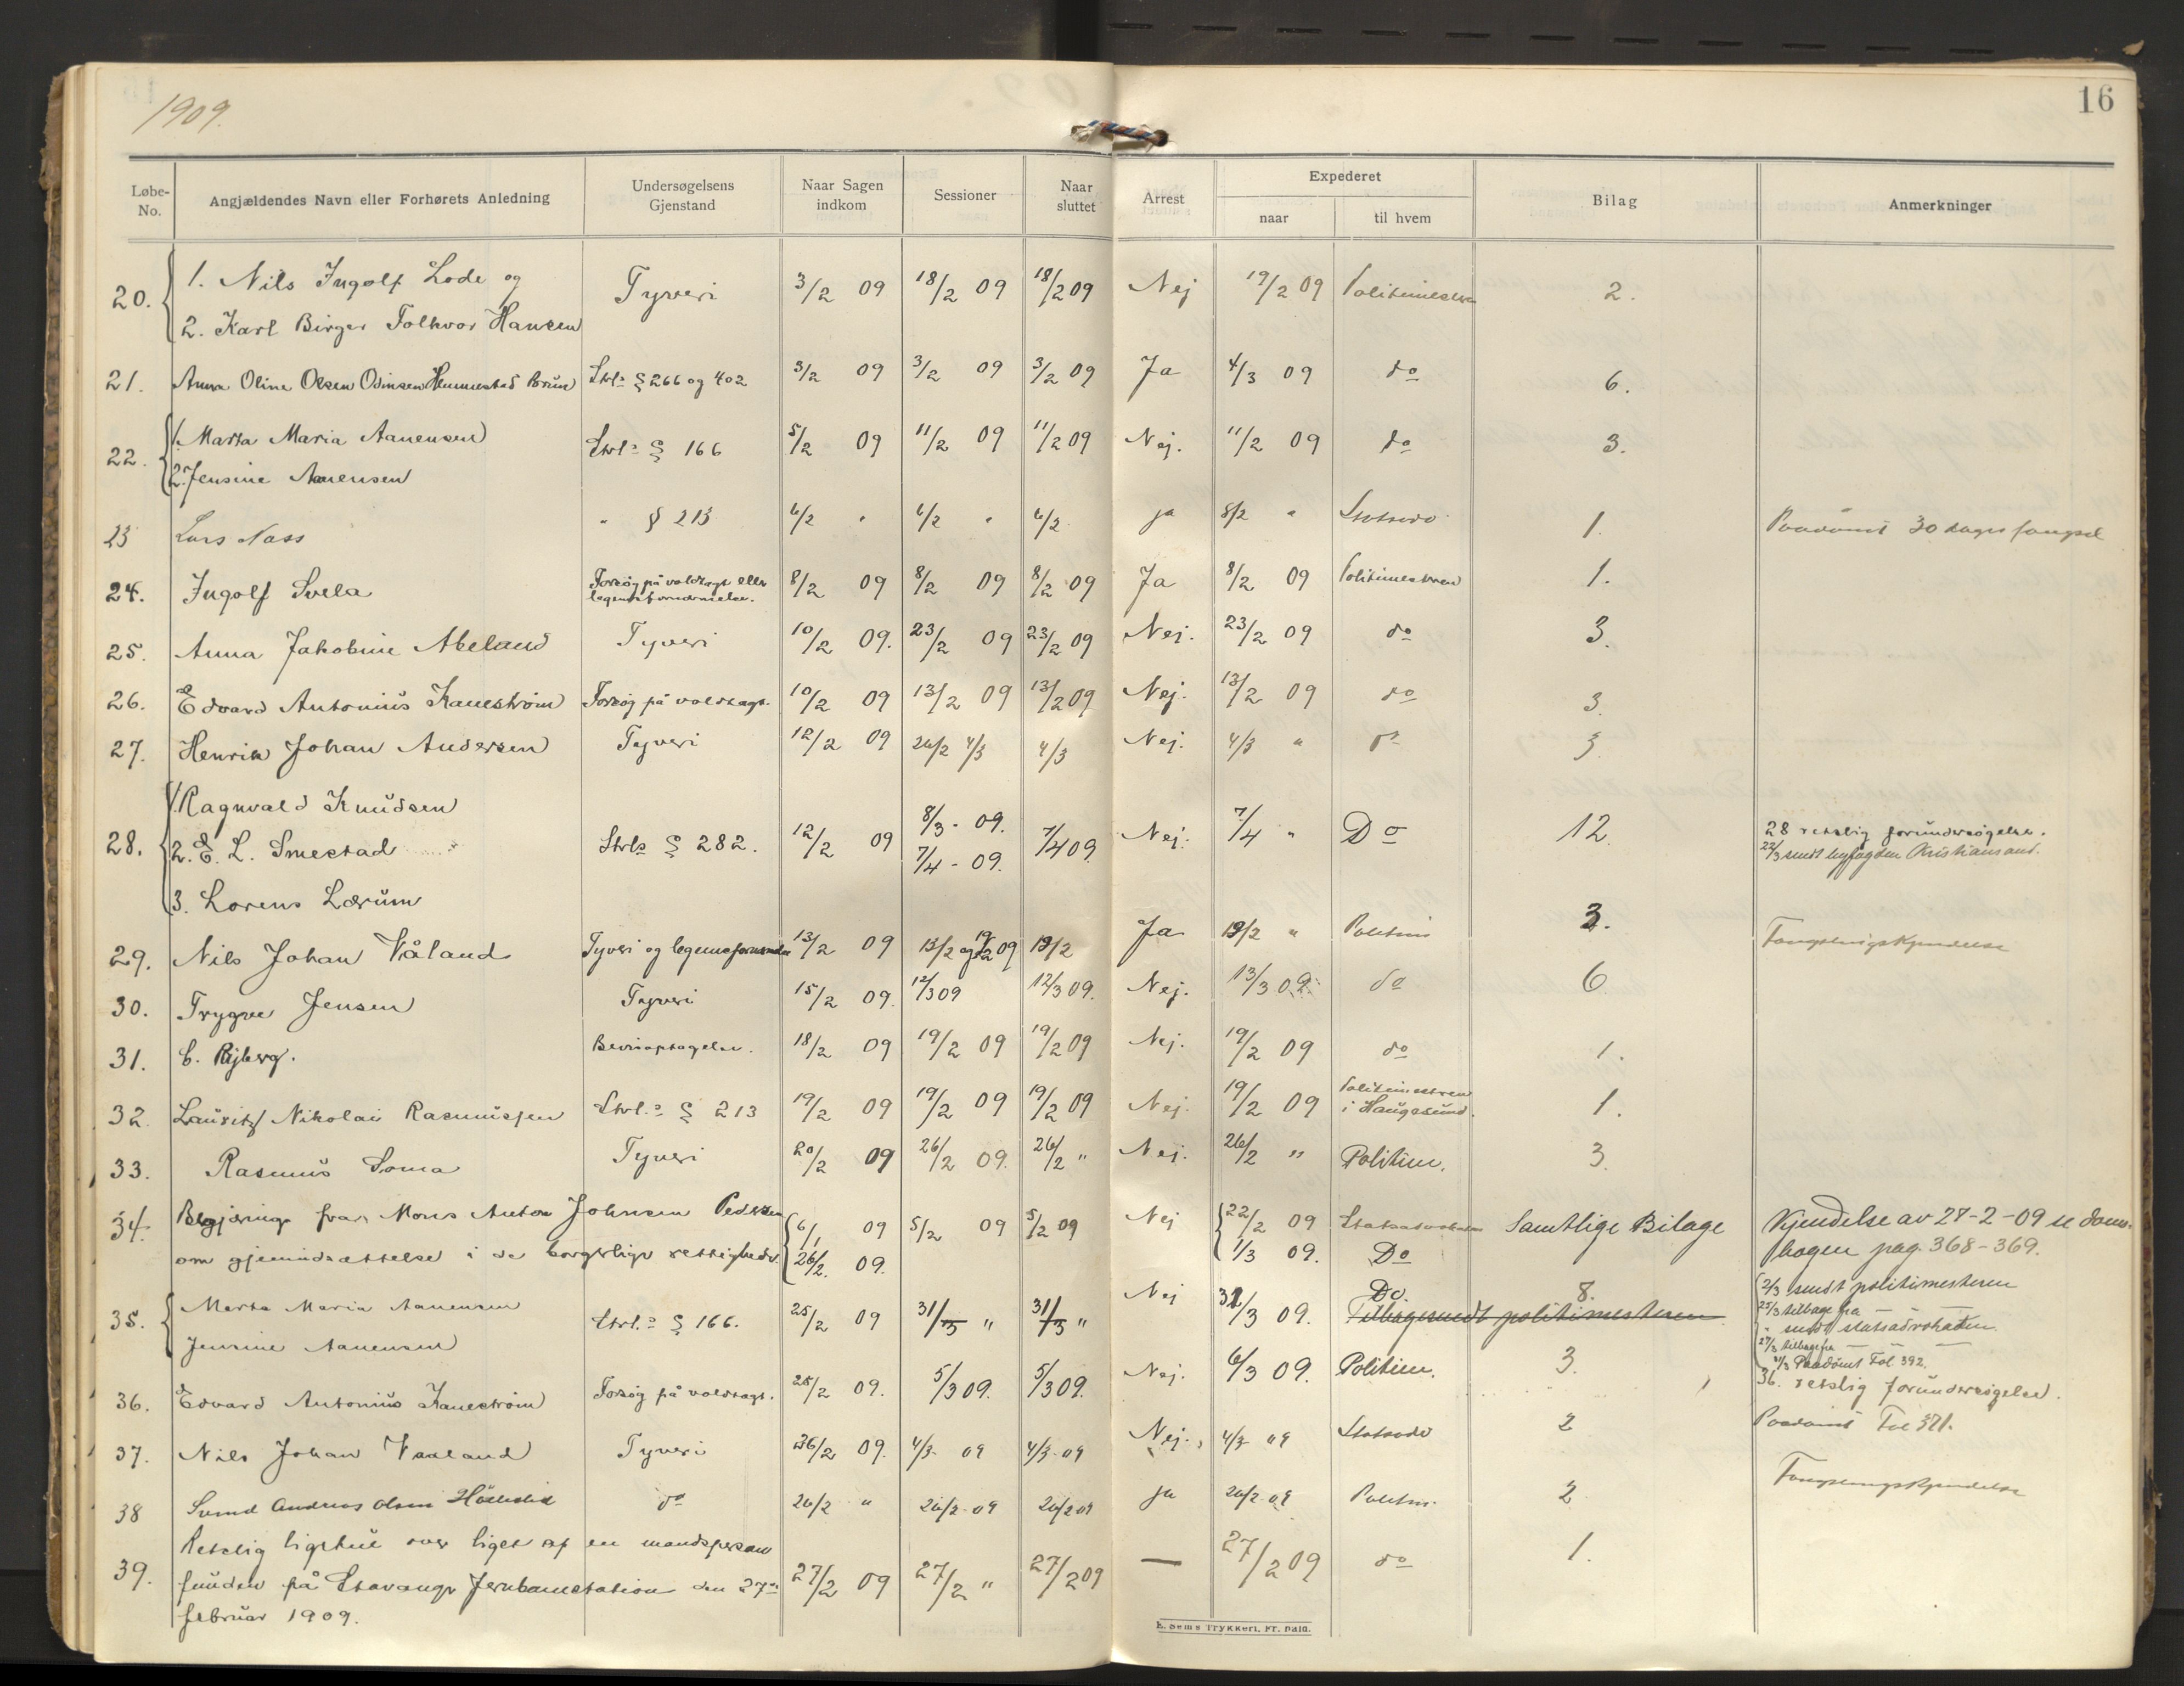 1909.
16
Løbe-No. Angjældendes Navn eller Forhørets Anledning Undersøgelsens Gjenstand Naar Sagen indkom Sessioner Naar sluttet Arrest Expederet naar til hvem Bilag Anmerkninger
20. 1. Nils Ingolf Lode og Tyveri 3/2 09 18/2 09 18/2 09 Nej 19/2 09 Politimesteren 2.
2. Karl Birger Folkvor Hansen
21. Anna Oline Olsen Odinsen Hummestad Brun Strl. § 266 og 402 3/2 09 3/2 09 3/2 09 Ja 4/3 09 do 6.
22. 1. Marta Maria Aanensen Strl. § 166 5/2 09 11/2 09 11/2 09 Nej. 11/2 09 do 3.
2. Jensine Aanensen
23 Lars Nass " § 213 6/2 " 6/2 " 6/2 ja 8/2 " Statsadv. 1. Paadömt 30 dages fængsel
24. Ingolf Svela Forsög på voldtægt eller 8/2 09 8/2 09 8/2 09 Ja 8/2 09 Politimesteren 1.
legemsfornærmelse.
25. Anna Jakobine Abeland Tyveri 10/2 09. 23/2 09 23/2 09 Nej. 23/2 09 do 3.
26. Edvard Antonius Kanestrøm Forsög på voldtægt. 10/2 09 13/2 09 13/2 09 Nej. 13/2 09 do 3.
27. Henrik Johan Andersen Tyveri 12/2 09 26/2 4/3 4/3 Nej. 4/3 " do 3
28. 1. Ragnvald Knudsen
2. E. L. Smestad Strl. § 282. 12/2 09 8/3 - 09. 7/4 - 09. 7/4 09. Nej. 7/4 " Do 12. 28 retslig forundersøgelse.
22/3 sendt byfogden Kristiansand.
3. Lorens Lærum
29. Nils Johan Våland Tyveri og legemsfornærm 13/2 09 13/2 og 19/2 09 19/2 Ja 19/2 " Politim 3. Fængslingskjendelse
30. Trygve Jensen Tyveri 15/2 09. 12/3 09 12/3 09. Nej. 13/3 09. do 6
31. C. Rijberg. Bevisoptagelse. 18/2 09 19/2 09 19/2 09 Nej. 19/2 09 do 1.
32. Lauritz Nikolai Rasmussen Strl. § 213 19/2 09 19/2 09 19/2 09 Nej. 19/2 09 Politimesteren i Haugesund. 1.
33. Rasmus Soma Tyveri 20/2 09 26/2 09. 26/2 " Nej. 26/2 " Politim. 3.
34. Begjæring fra Mons Anton Johnsen Pedersen 6/1 09 5/2 09 5/2 09 Nej 22/2 09 Statsadvokaten Samtlige Bilage Kjendelse av 27-2-09 se doms-
om gjenindsættelse i de borgerlige rettigheder. 26/2. 09. 1/3 09. Do bogen pag. 368-369.
35. Marta Maria Aanensen Strl. § 166. 25/2 09 31/3 " 31/3 " Nej 31/3 09. Do. 8. 2/3 sendt politimesteren
Tilbagesendt politimesteren 25/3 tilbage fra — " —
" sendt statsadvokaten.
Jensine Aanensen 27/3 tilbage fra — " —
31/3 Paadömt Fol 392.
36. Edvard Antonius Kanestrøm Forsög på voldtægt. 25/2 09. 5/3 09. 5/3 09. Nej. 6/3 09. Politim. 3. 36. retslig forundersøgelse.
37. Nils Johan Vaaland Tyveri 26/2 09. 4/3 09 4/3 - 09 Nej. 4/3 09 Statsadv 2 Paadömt Fol 371.
38 Svend Andreas Olsen do 26/2 " 26/2 - 09 26/2 09 ja 26/2 - 09 Politm. 2 Fængslingskjendelse
39. Retslig ligskue over liget af en mandsperson
funden på Stavanger Jernbanestation den 27de 27/2 09 27/2 " 27/2 09 — 27/2 09 do 1.
februar 1909.
E. Sems Trykkeri, Fr.hald.